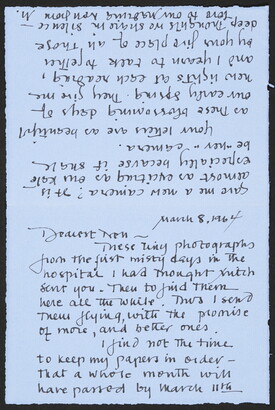 March 8, 1964
Dearest Non ~
These tiny photographs
from the first misty days in the
hospital I had thought
sent you. Then to find them
here all the while. Thus I send
them flying, with the promise
of more, and better ones.
I find not the time
to keep my papers in order —
that a whole month will
have passed by March 11th
gave me a new camera? It is
almost as exciting as our
especially because it
new camera.
Your letters are as beautiful
as these blossoming days of
our early Spring. They give me
new lights at each reading
and I yearn to talk together
by your place of all those
deep thoughts we share in silence —
love to our M.